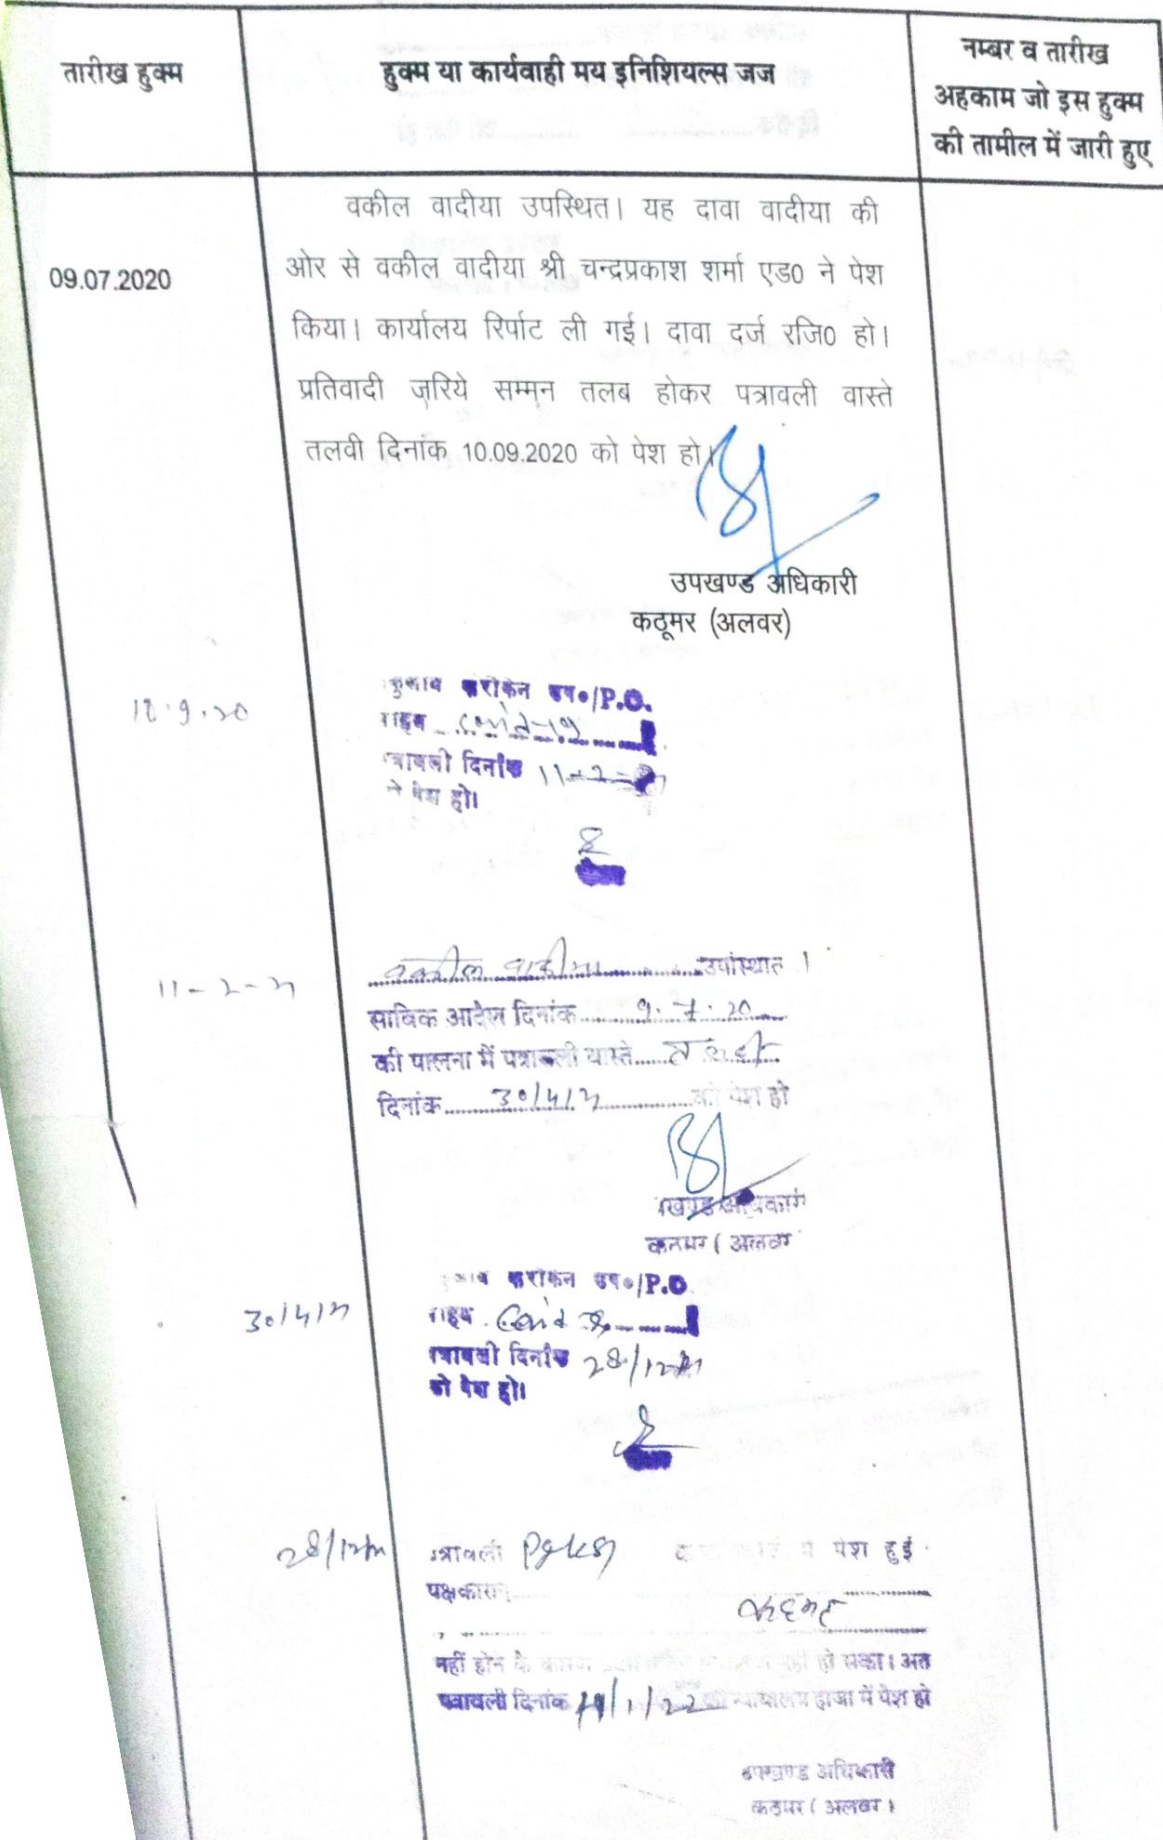 तारीख हुक्म
हुक्म या कार्यवाही मय इनिशियल्स जज
नम्बर व तारीख
अहकाम जो इस हुक्म
की तामील में जारी हुए
09.07.2020
वकील वादीया उपस्थित। यह दावा वादीया की
ओर से वकील वादीया श्री चन्द्रप्रकाश शर्मा एड0 ने पेश
किया। कार्यालय रिर्पाट ली गई। दावा दर्ज रजि0 हो।
प्रतिवादी जरिये सम्मन तलब होकर पत्रावली वास्ते
तलवी दिनांक 10.09.2020 को पेश हो।
उपखण्ड अधिकारी
कठूमर (अलवर)
10.9.20
/P.O.
covid-19
दिनांक 11-2-21
पेश हो।
11-2-21
वकील वादीया उपस्थित।
साबिक आदेश दिनांक 9.7.20
की पालना में पत्रावली वास्ते तलवी
दिनांक 30/4/21 को पेश हो
अधिकारी
कठूमर (अलवर
30/4/21
/P.O.
Covid
दिनांक 28/12/21
को पेश हो।
28/12/21
पेश हुई
पक्षकारान
नहीं होने के कारण हो सका। अत
पत्रावली दिनांक /1/22 न्यायालय हाजा में पेश हो
उपखण्ड अधिकारी
कठूमर (अलवर)